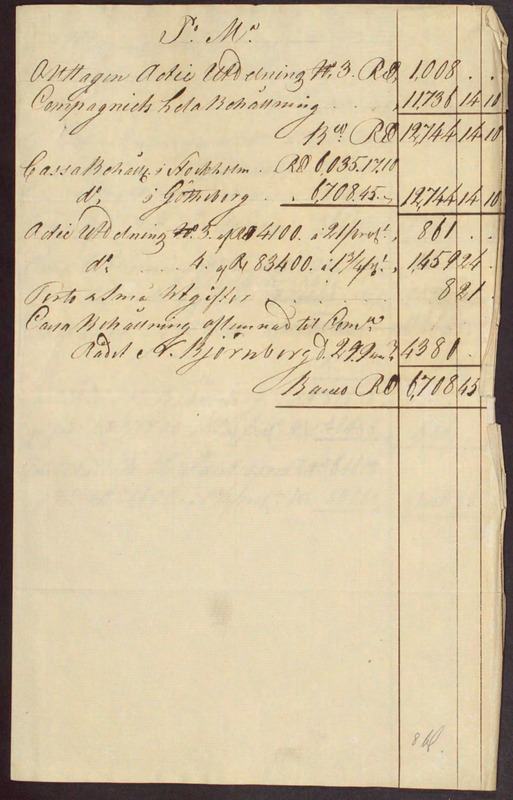 P. M.
Outtagen Actie Utdelning No 3. RD 1,008 . .
Compagniets hela Behållning . . . 11,736 14 10
Bco RD 12,744 14 10
Cassa Behålln i Stockholm . RD 6,035.17.10
do, i Götheborg . . 6,708.45.. 12,744 14 10
Actie Utdelning No 3. af RD 4100. à 21 prct, 861 . .
do . . . 4. af RD 83400. à 1 3/4 prct, 1,459 24 .
Porto & Små Utgifter . . . 8 21 .
Cassa Behållning aflemnad til Com
Rådet A. Björnberg d. 29 4380 .
Banco RD 6,708 45